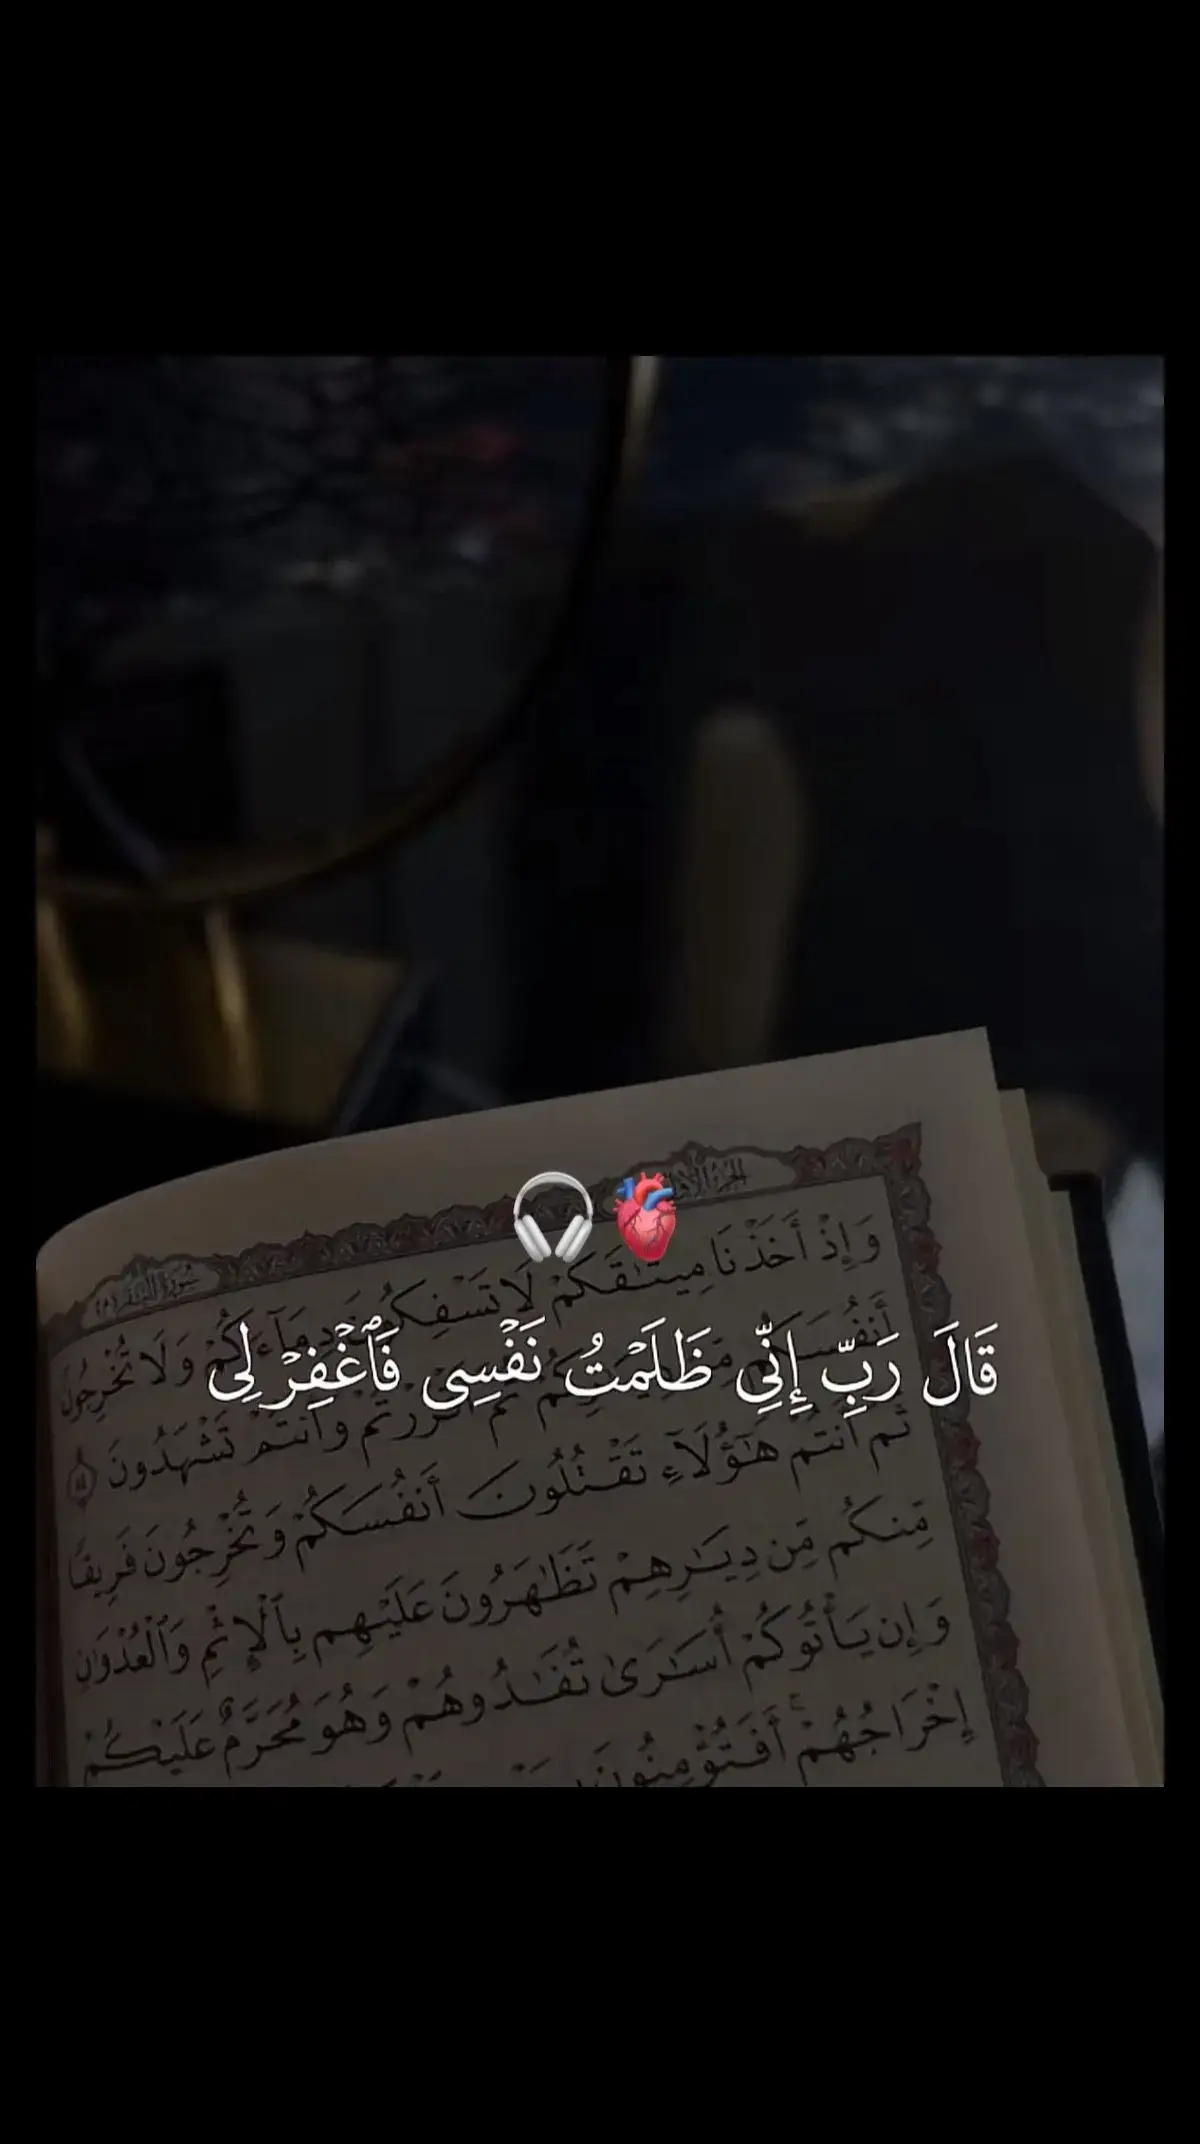 الجزء الأول
سورة البقرة
وَإِذْ أَخَذْنَا مِيثَٰقَكُمْ لَا تَسْفِكُونَ دِمَآءَكُمْ وَلَا تُخْرِجُونَ
قَالَ رَبِّ إِنِّى ظَلَمْتُ نَفْسِى فَٱغْفِرْ لِى
أَنفُسَكُم وَأَنتُمْ تَشْهَدُونَ ٨٤
ثُمَّ أَنتُمْ هَٰٓؤُلَآءِ تَقْتُلُونَ أَنفُسَكُمْ وَتُخْرِجُونَ فَرِيقًا
مِّنكُم مِّن دِيَٰرِهِمْ تَظَٰهَرُونَ عَلَيْهِم بِٱلْإِثْمِ وَٱلْعُدْوَٰنِ
وَإِن يَأْتُوكُمْ أُسَٰرَىٰ تُفَٰدُوهُمْ وَهُوَ مُحَرَّمٌ عَلَيْكُمْ
إِخْرَاجُهُمْ ۚ أَفَتُؤْمِنُونَ